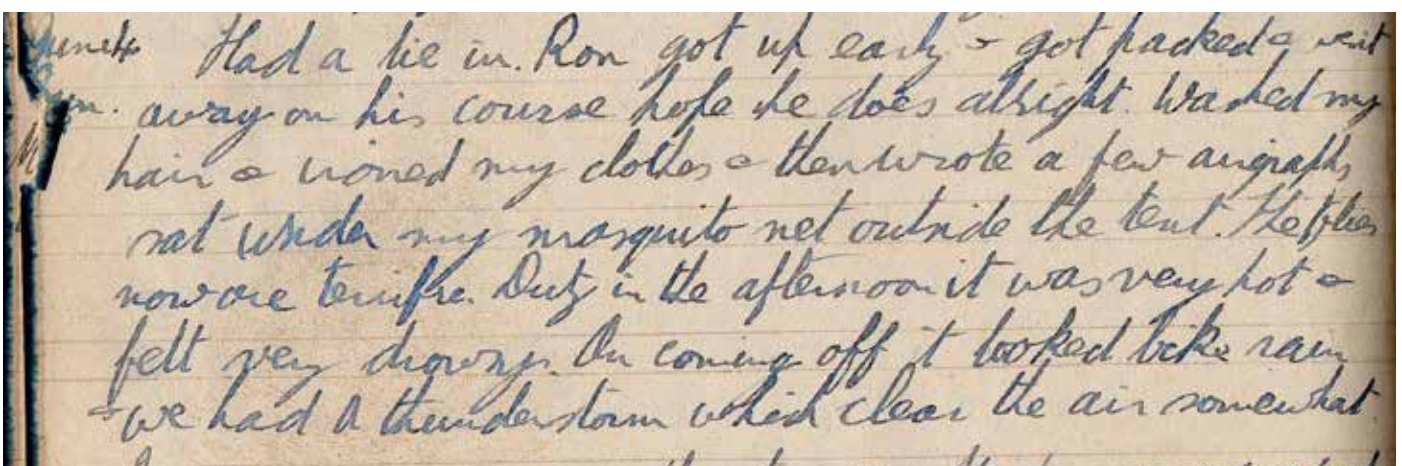 June 4 Had a lie in. Ron got up early & got packed & went
away on his course hope he does alright. Washed my
hair & ironed my clothes & then wrote a few airgraphs
sat under my mosquito net outside the tent. The flies
now are terrific. Duty in the afternoon it was very hot &
felt very drowsy. On coming off it looked like rain
& we had a thunderstorm which clear the air somewhat.